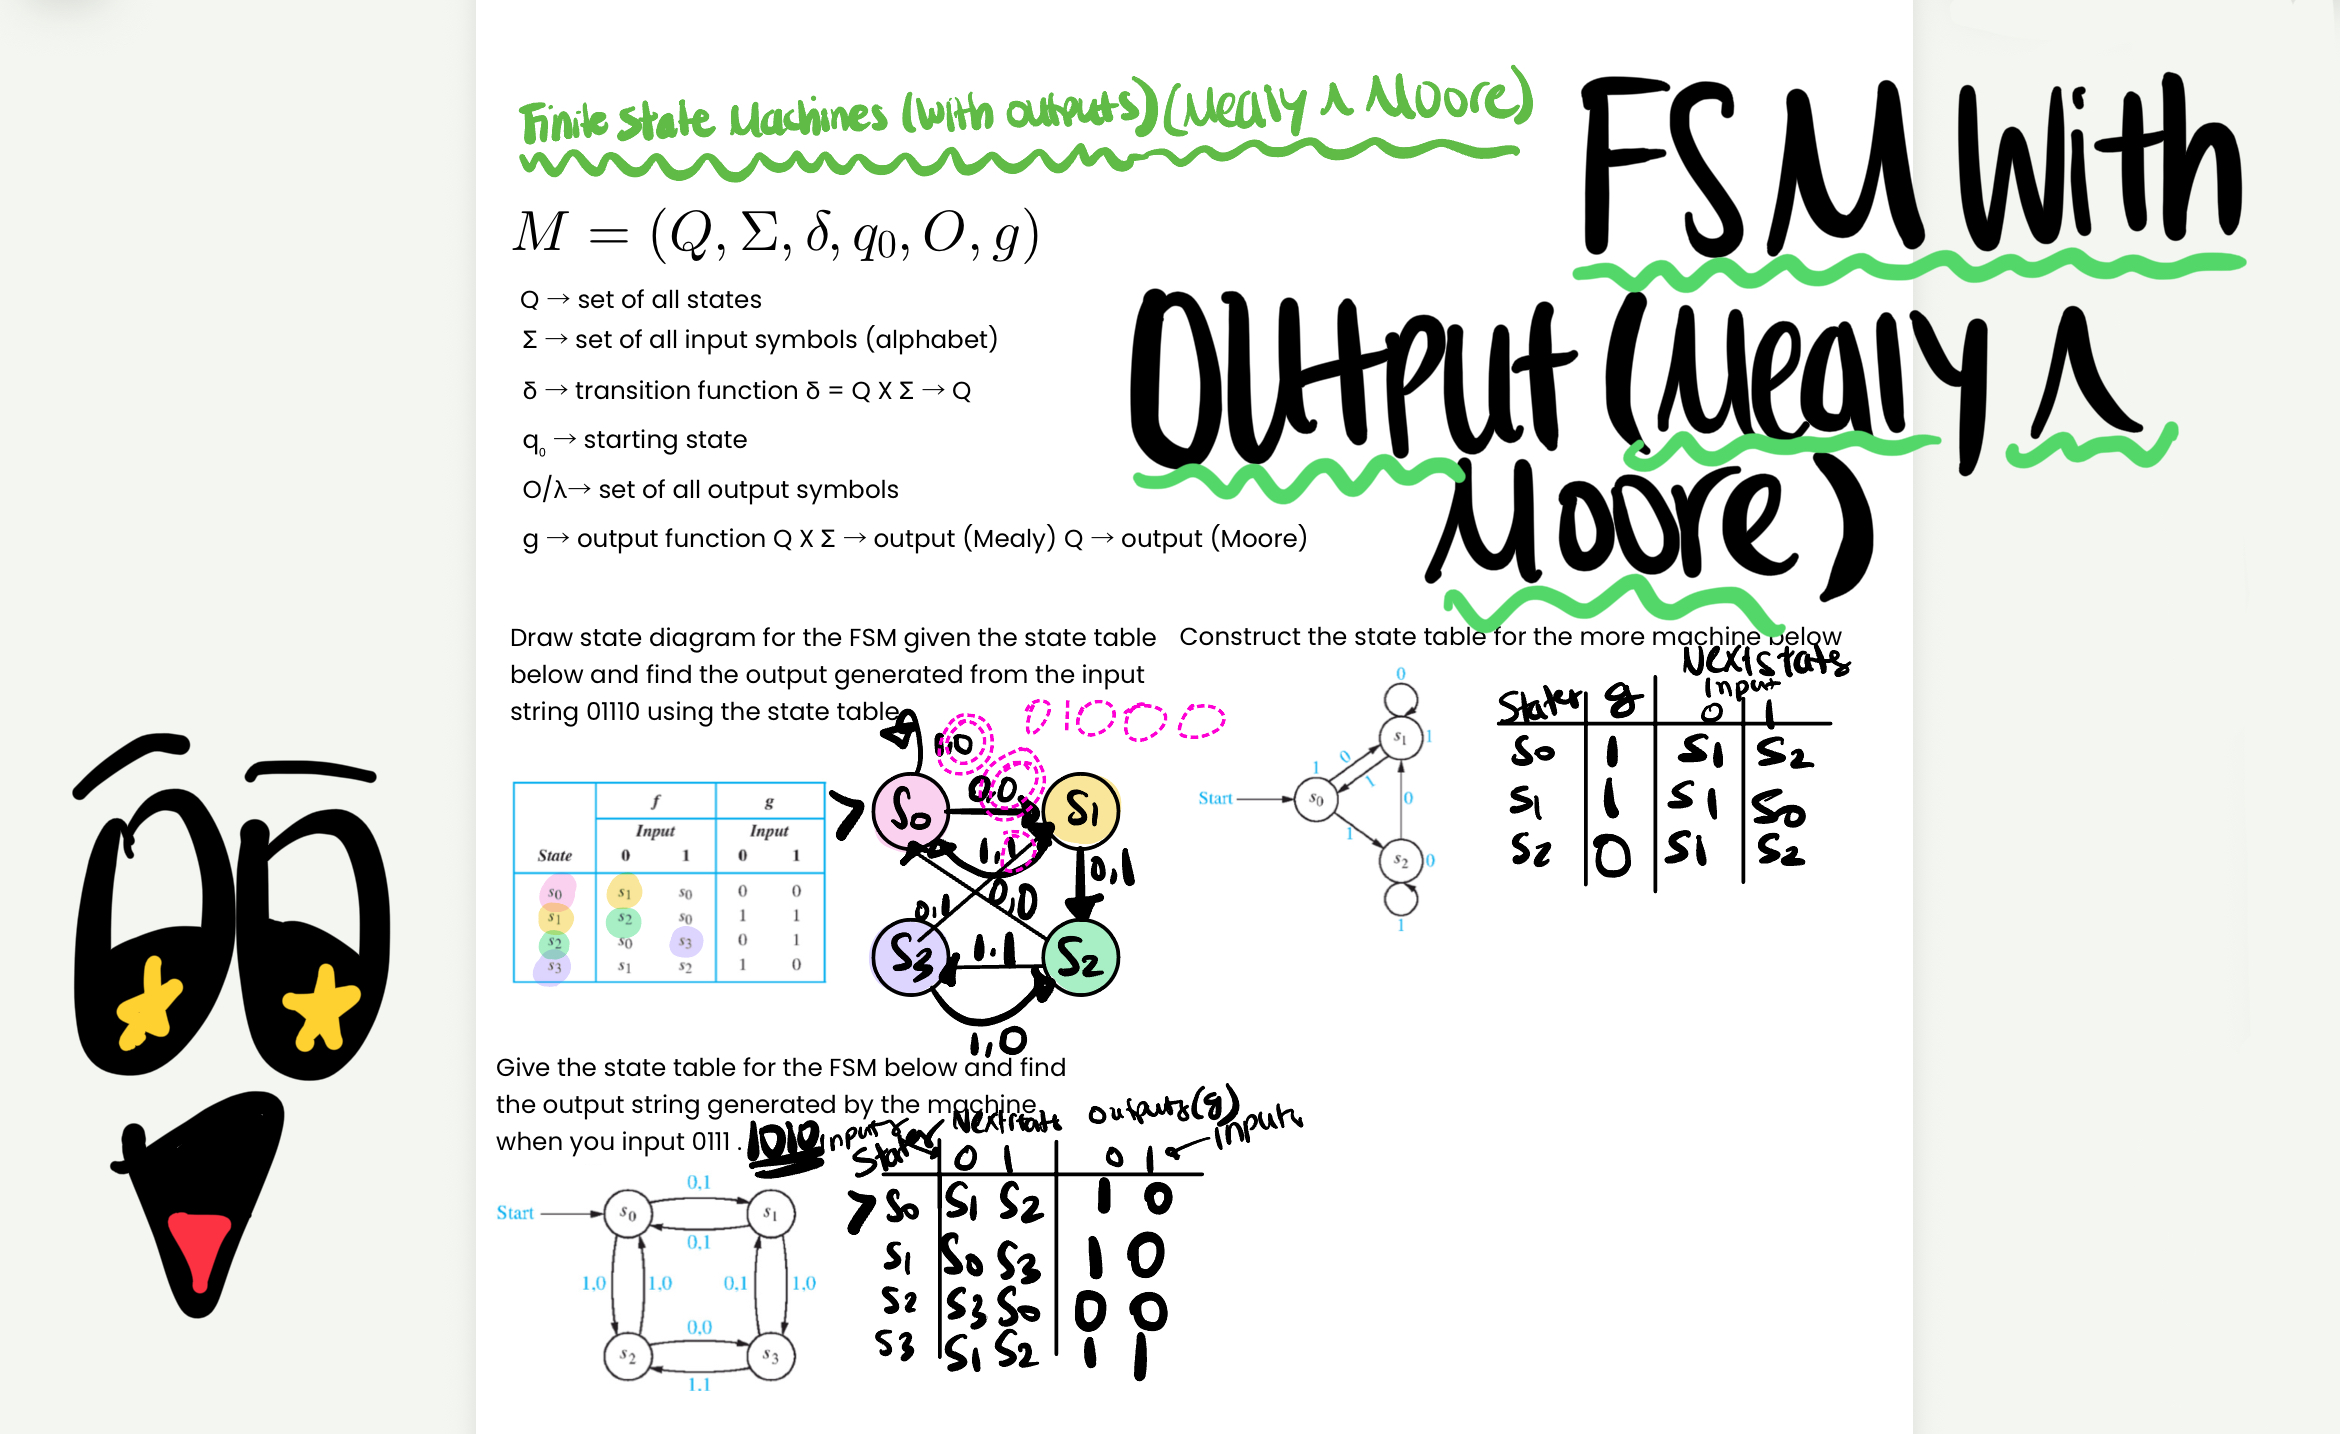 Finite State Machines (with outputs) (Mealy ∧ Moore)
FSM With
Output (Mealy ∧
Moore)
M = (Q, Σ, δ, q0, O, g)
Q → set of all states
Σ → set of all input symbols (alphabet)
δ → transition function δ = Q X Σ → Q
q0 → starting state
O/λ→ set of all output symbols
g → output function Q X Σ → output (Mealy) Q → output (Moore)
Draw state diagram for the FSM given the state table
below and find the output generated from the input
string 01110 using the state table
01000
f g
Input Input
State 0 1 0 1
s0 s1 s0 0 0
s1 s2 s0 1 1
s2 s0 s3 0 1
s3 s1 s2 1 0
1,0
0,0
S0 S1
1,1
0,1
0,1 0,0
S3 1,1 S2
1,0
Construct the state table for the more machine below
0
s1 1
1 0
1
Start s0 0
1
s2 0
1
Next state
States g Input
0 1
S0 1 S1 S2
S1 1 S1 S0
S2 0 S1 S2
Give the state table for the FSM below and find
the output string generated by the machine
when you input 0111 . 1010
0,1
Start s0 s1
0,1
1,0 1,0 0,1 1,0
0,0
s2 s3
1,1
Next state outputs(g)
Inputs
States 0 1 0 1 Inputs
> S0 S1 S2 1 0
S1 S0 S3 1 0
S2 S3 S0 0 0
S3 S1 S2 1 1